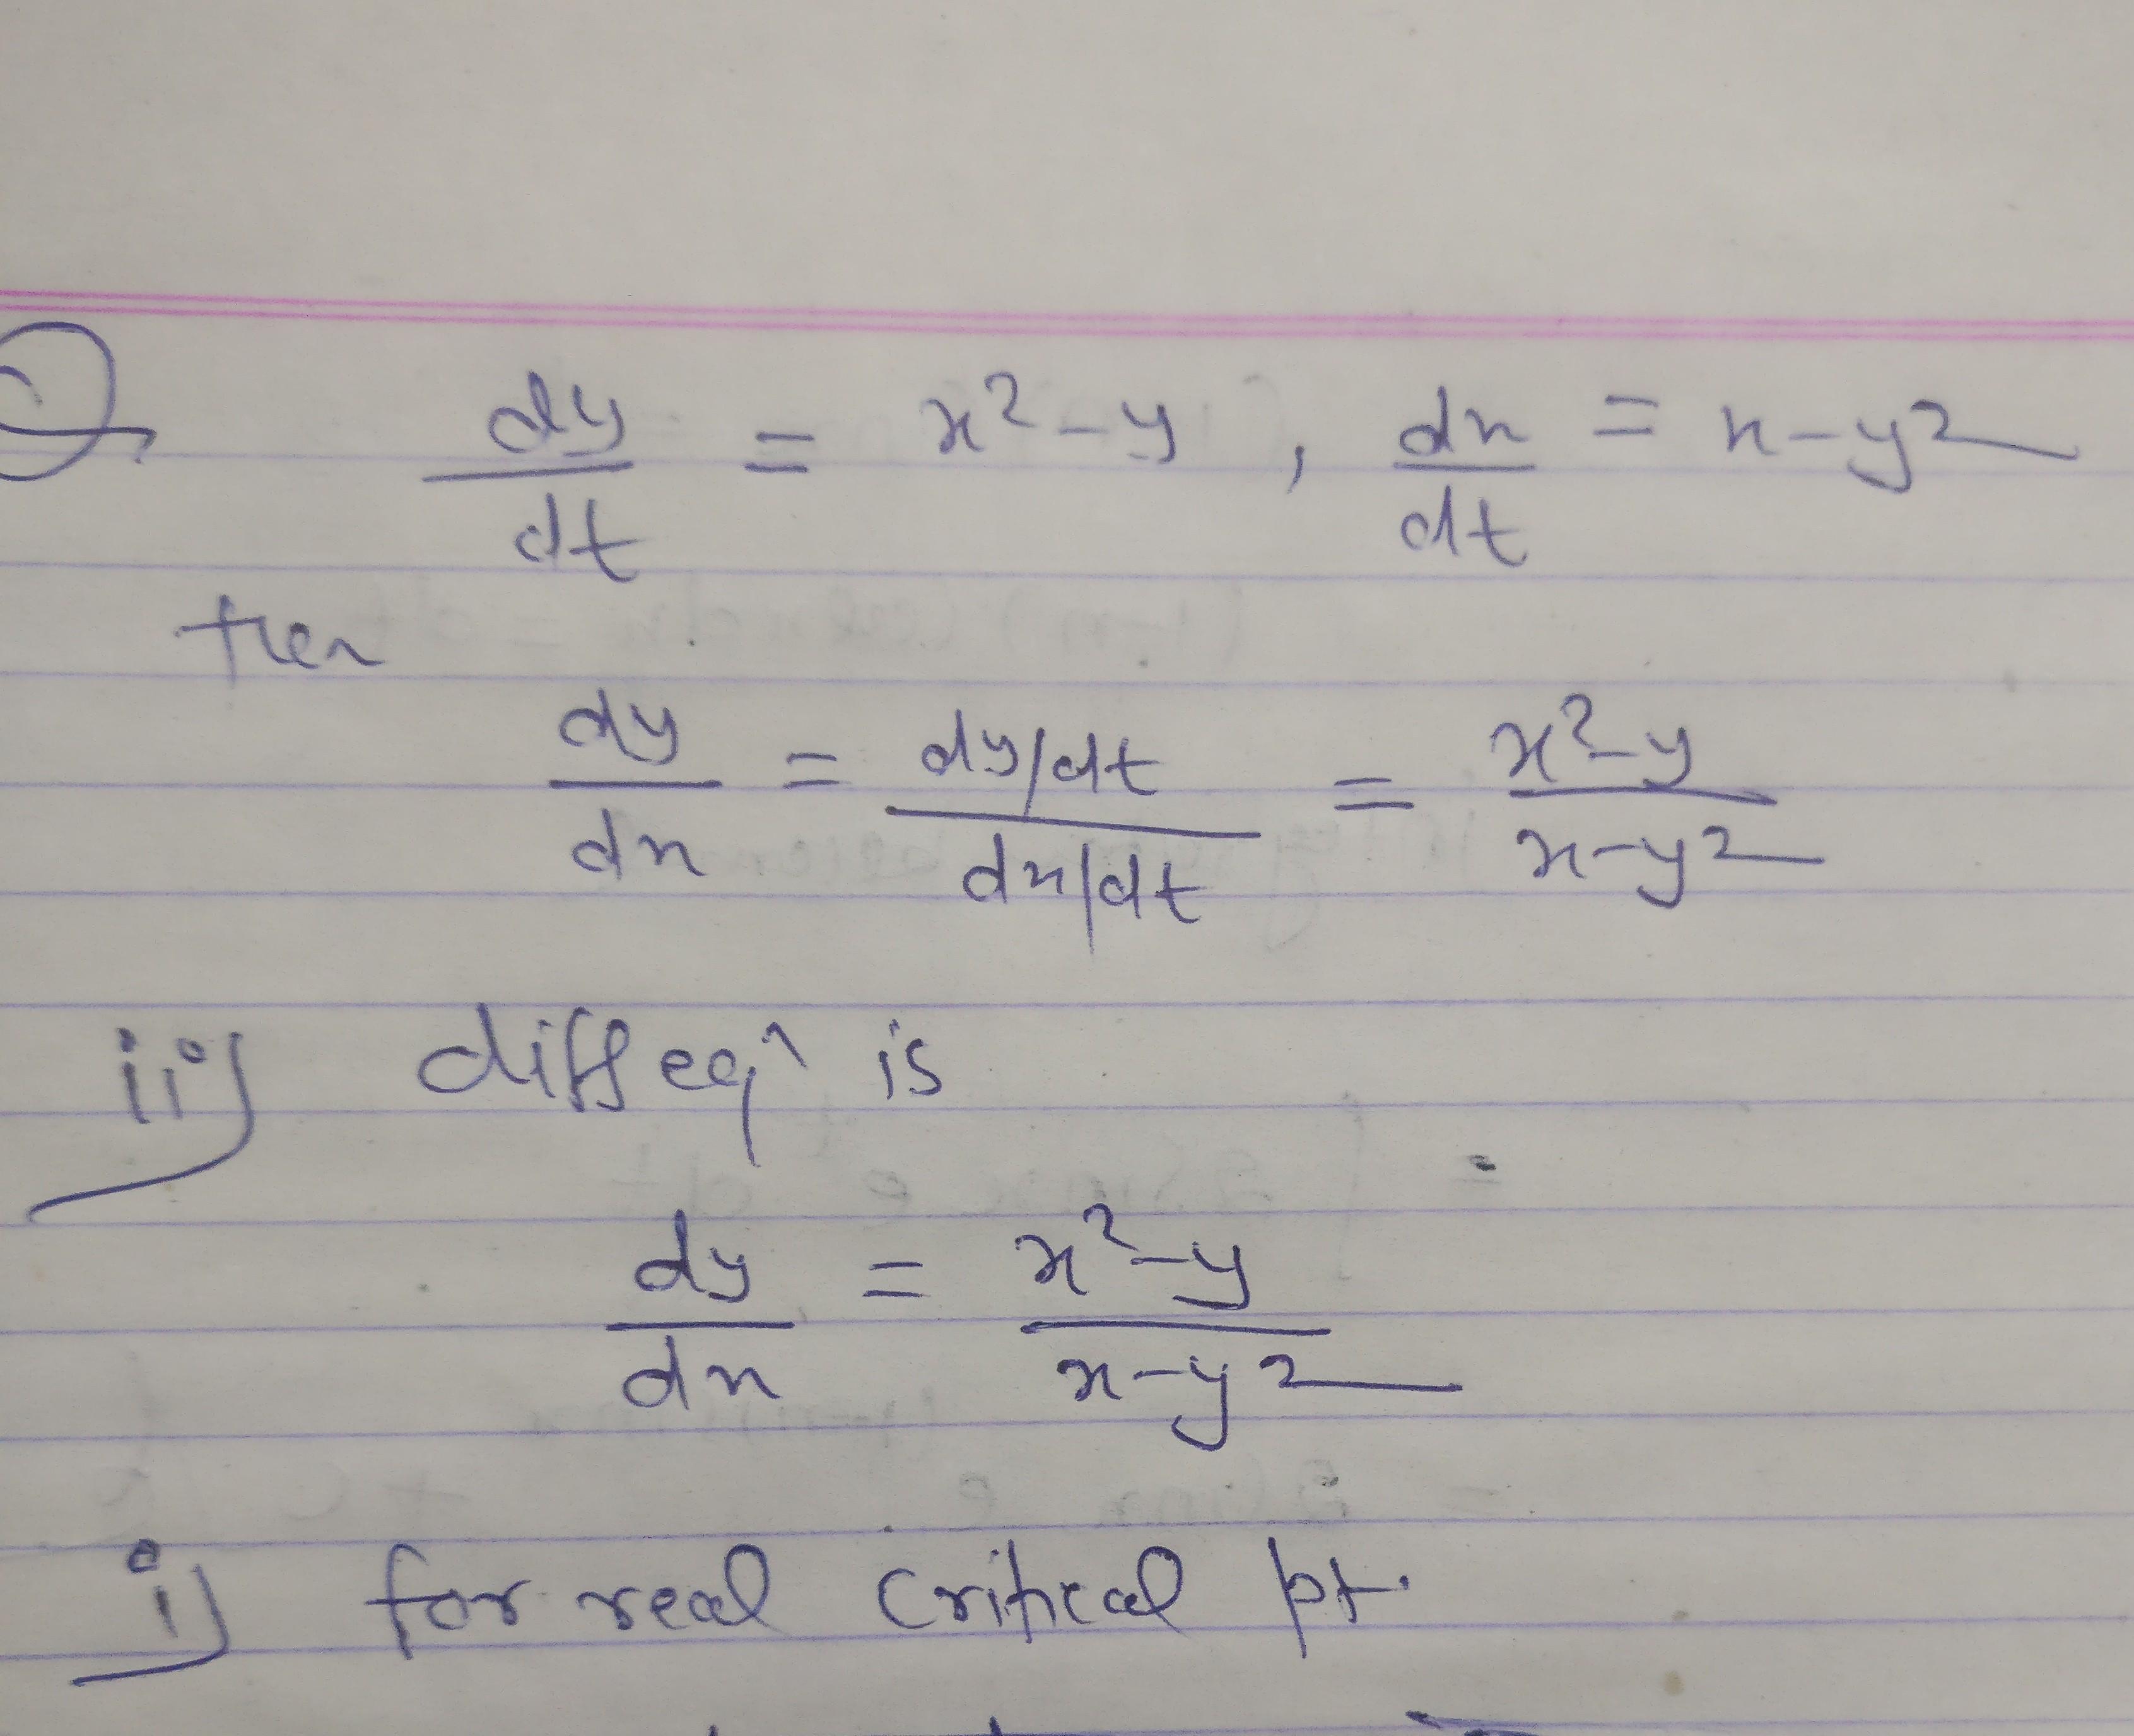 dy/dt = x² - y , dx/dt = x - y²
then
dy/dx = (dy/dt)/(dx/dt) = (x² - y)/(x - y²)
ii) diff eqⁿ is
dy/dx = (x² - y)/(x - y²)
i) for real critical pt.